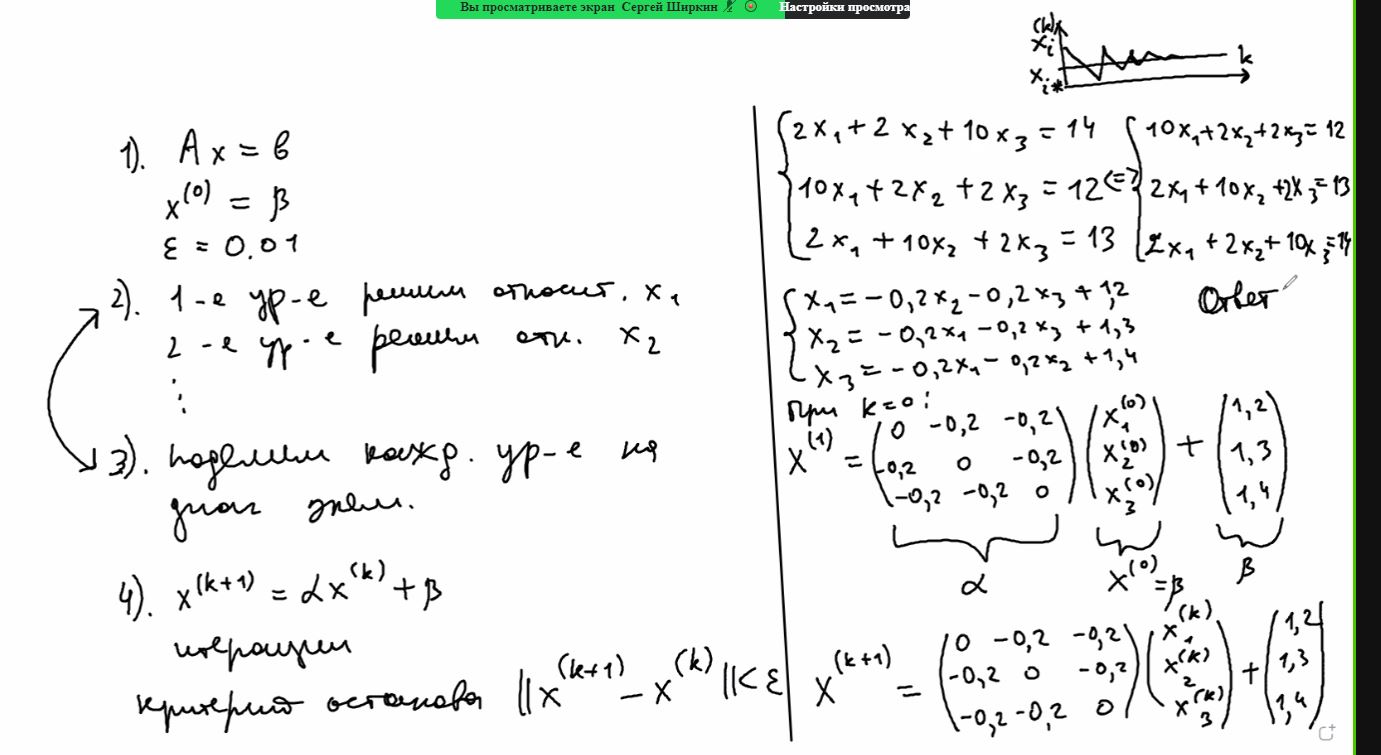 Вы просматриваете экран Сергей Ширкин
Настройки просмотра
x_i^(k)
x_i*
k
1). Ax = b
x^(0) = β
ε = 0.01
2). 1-е ур-е решим относит. x₁
2-е ур-е решим отн. x₂
⋮
3). поделим кажд. ур-е на
диаг элем.
4). x^(k+1) = αx^(k) + β
итерации
критерий останова ||x^(k+1) − x^(k)|| < ε
{ 2x₁ + 2x₂ + 10x₃ = 14
10x₁ + 2x₂ + 2x₃ = 12 <=>
2x₁ + 10x₂ + 2x₃ = 13
{ 10x₁+2x₂+2x₃=12
2x₁+10x₂+2x₃=13
2x₁+2x₂+10x₃=14
{ x₁ = −0,2x₂ −0,2x₃ + 1,2
x₂ = −0,2x₁ −0,2x₃ + 1,3
x₃ = −0,2x₁ − 0,2x₂ + 1,4
Ответ
При k=0:
x^(1) = ( 0 −0,2 −0,2 ) ( x₁^(0) ) + ( 1,2 )
( −0,2 0 −0,2 ) ( x₂^(0) ) ( 1,3 )
( −0,2 −0,2 0 ) ( x₃^(0) ) ( 1,4 )
α x^(0)=β β
x^(k+1) = ( 0 −0,2 −0,2 ) ( x₁^(k) ) + ( 1,2 )
( −0,2 0 −0,2 ) ( x₂^(k) ) ( 1,3 )
( −0,2 −0,2 0 ) ( x₃^(k) ) ( 1,4 )